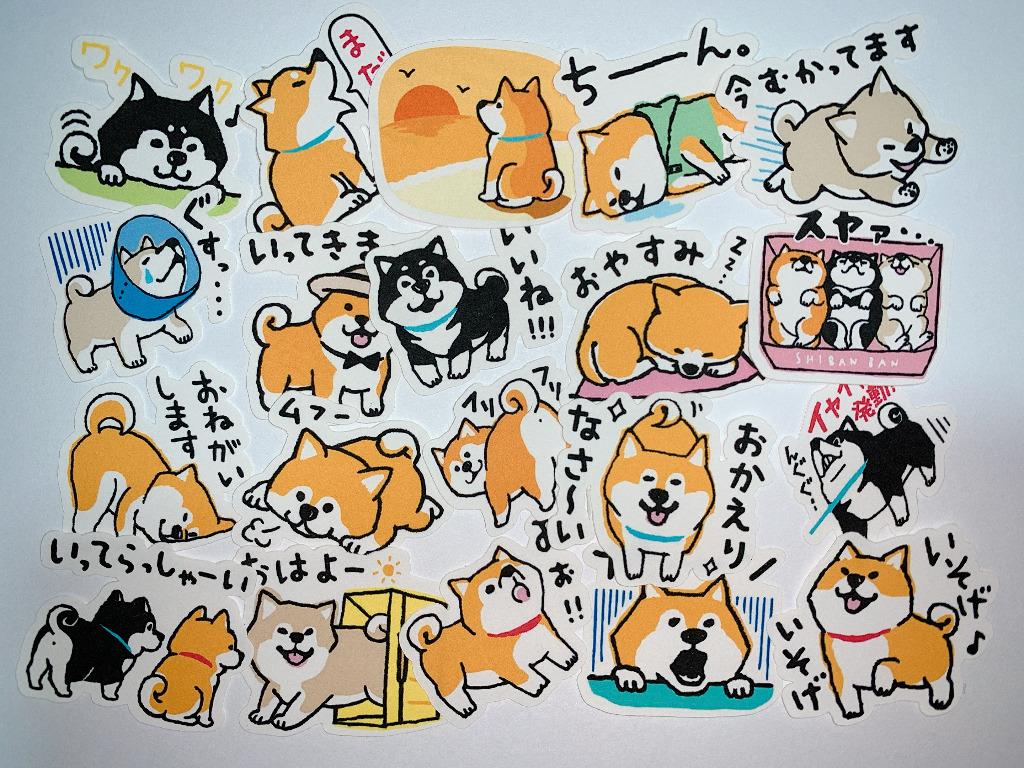 ワク ワク
まだ
ちーーん。
今むかってます
ぐすっ……
いってきま
いいね!!!
おやすみ
zzz…
スヤァ…
SHIBAN BAN
おねがい
します
ムフー
フリッ フリッ
なさ〜い
おかえり
イヤイヤ
発動
んぐぐ…
いってらっしゃーい
おはよー
お
!!
いそげ♪
いそげ